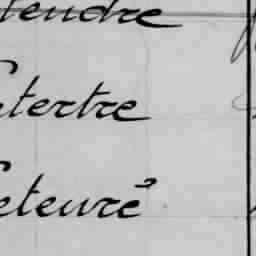 tendre
etertre
eteuré